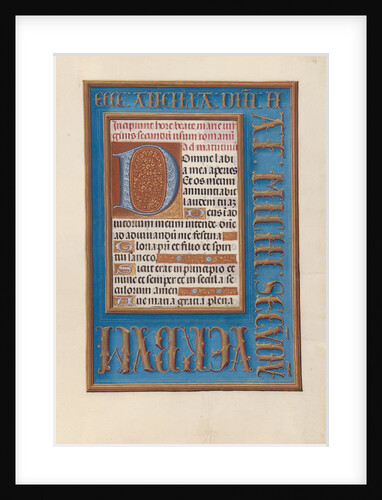 ECCE ANCILLA DÑI FI
AT MICHI SECVDV̄
VERBVM
Incipiunt hore beate marie vir
ginis secundū usum romanū
Ad matutinū
Domine labi
a mea aperies
Et os meum
annuntiabit
laudem tuaꝫ
Deus in ad
iutorium meum intende. One
ad adiuuandū me festina
Gloria pri et filio et spiri
tui sancto
Sicut erat in principio et
nunc et semper et in secula se
culorum amen
Aue maria gratia plena